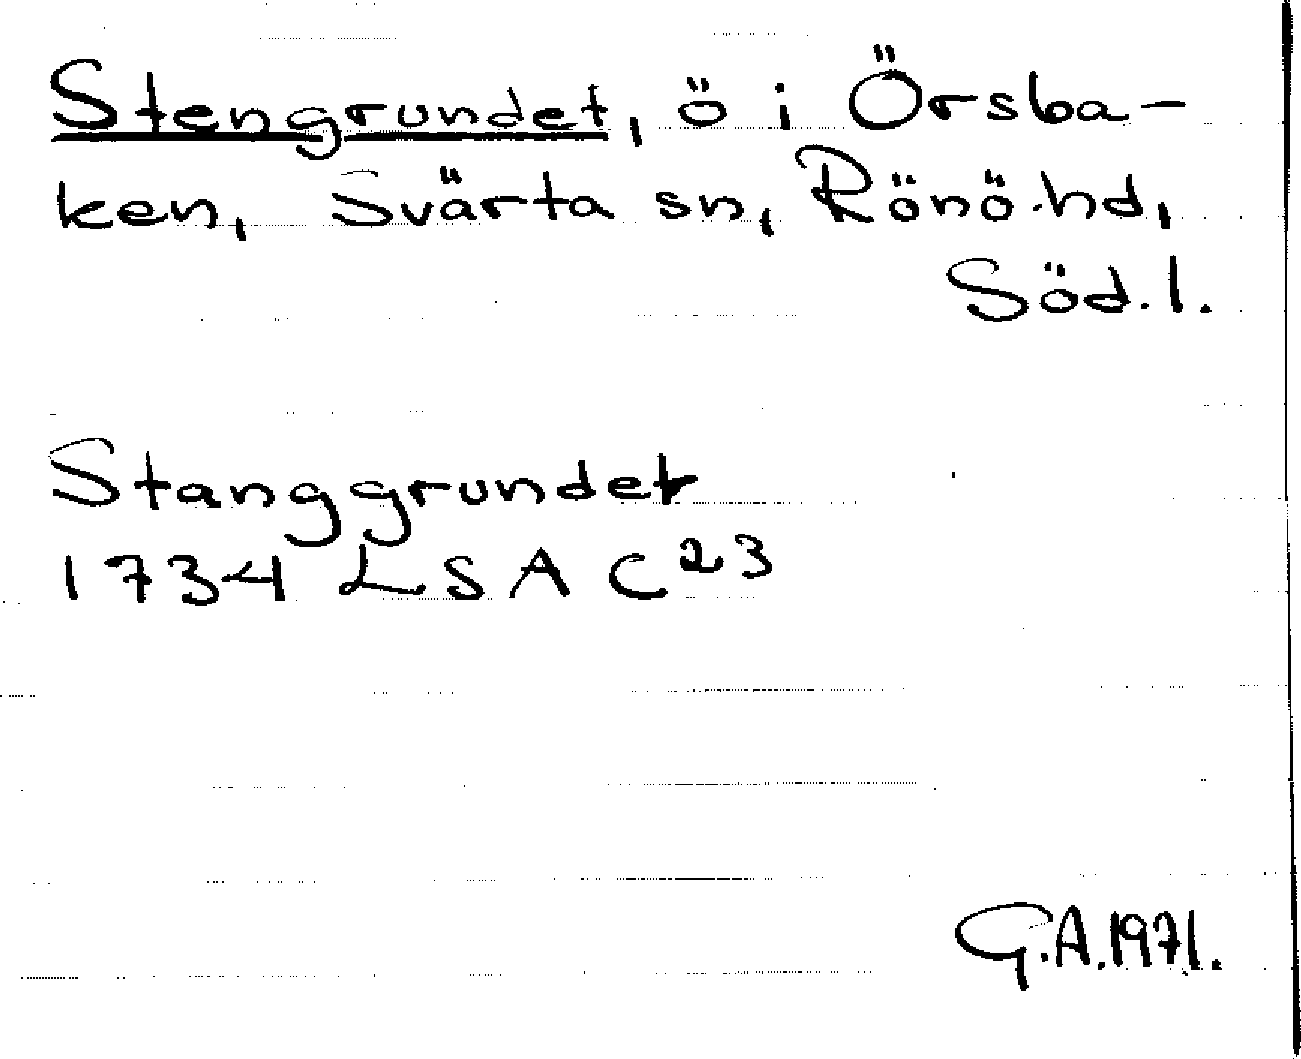 Stengrundet, ö i Örsba-
ken, Svärta sn, Rönö hd,
Söd.l.
Stanggrundet
1734 LSA C23
G.A.1971.